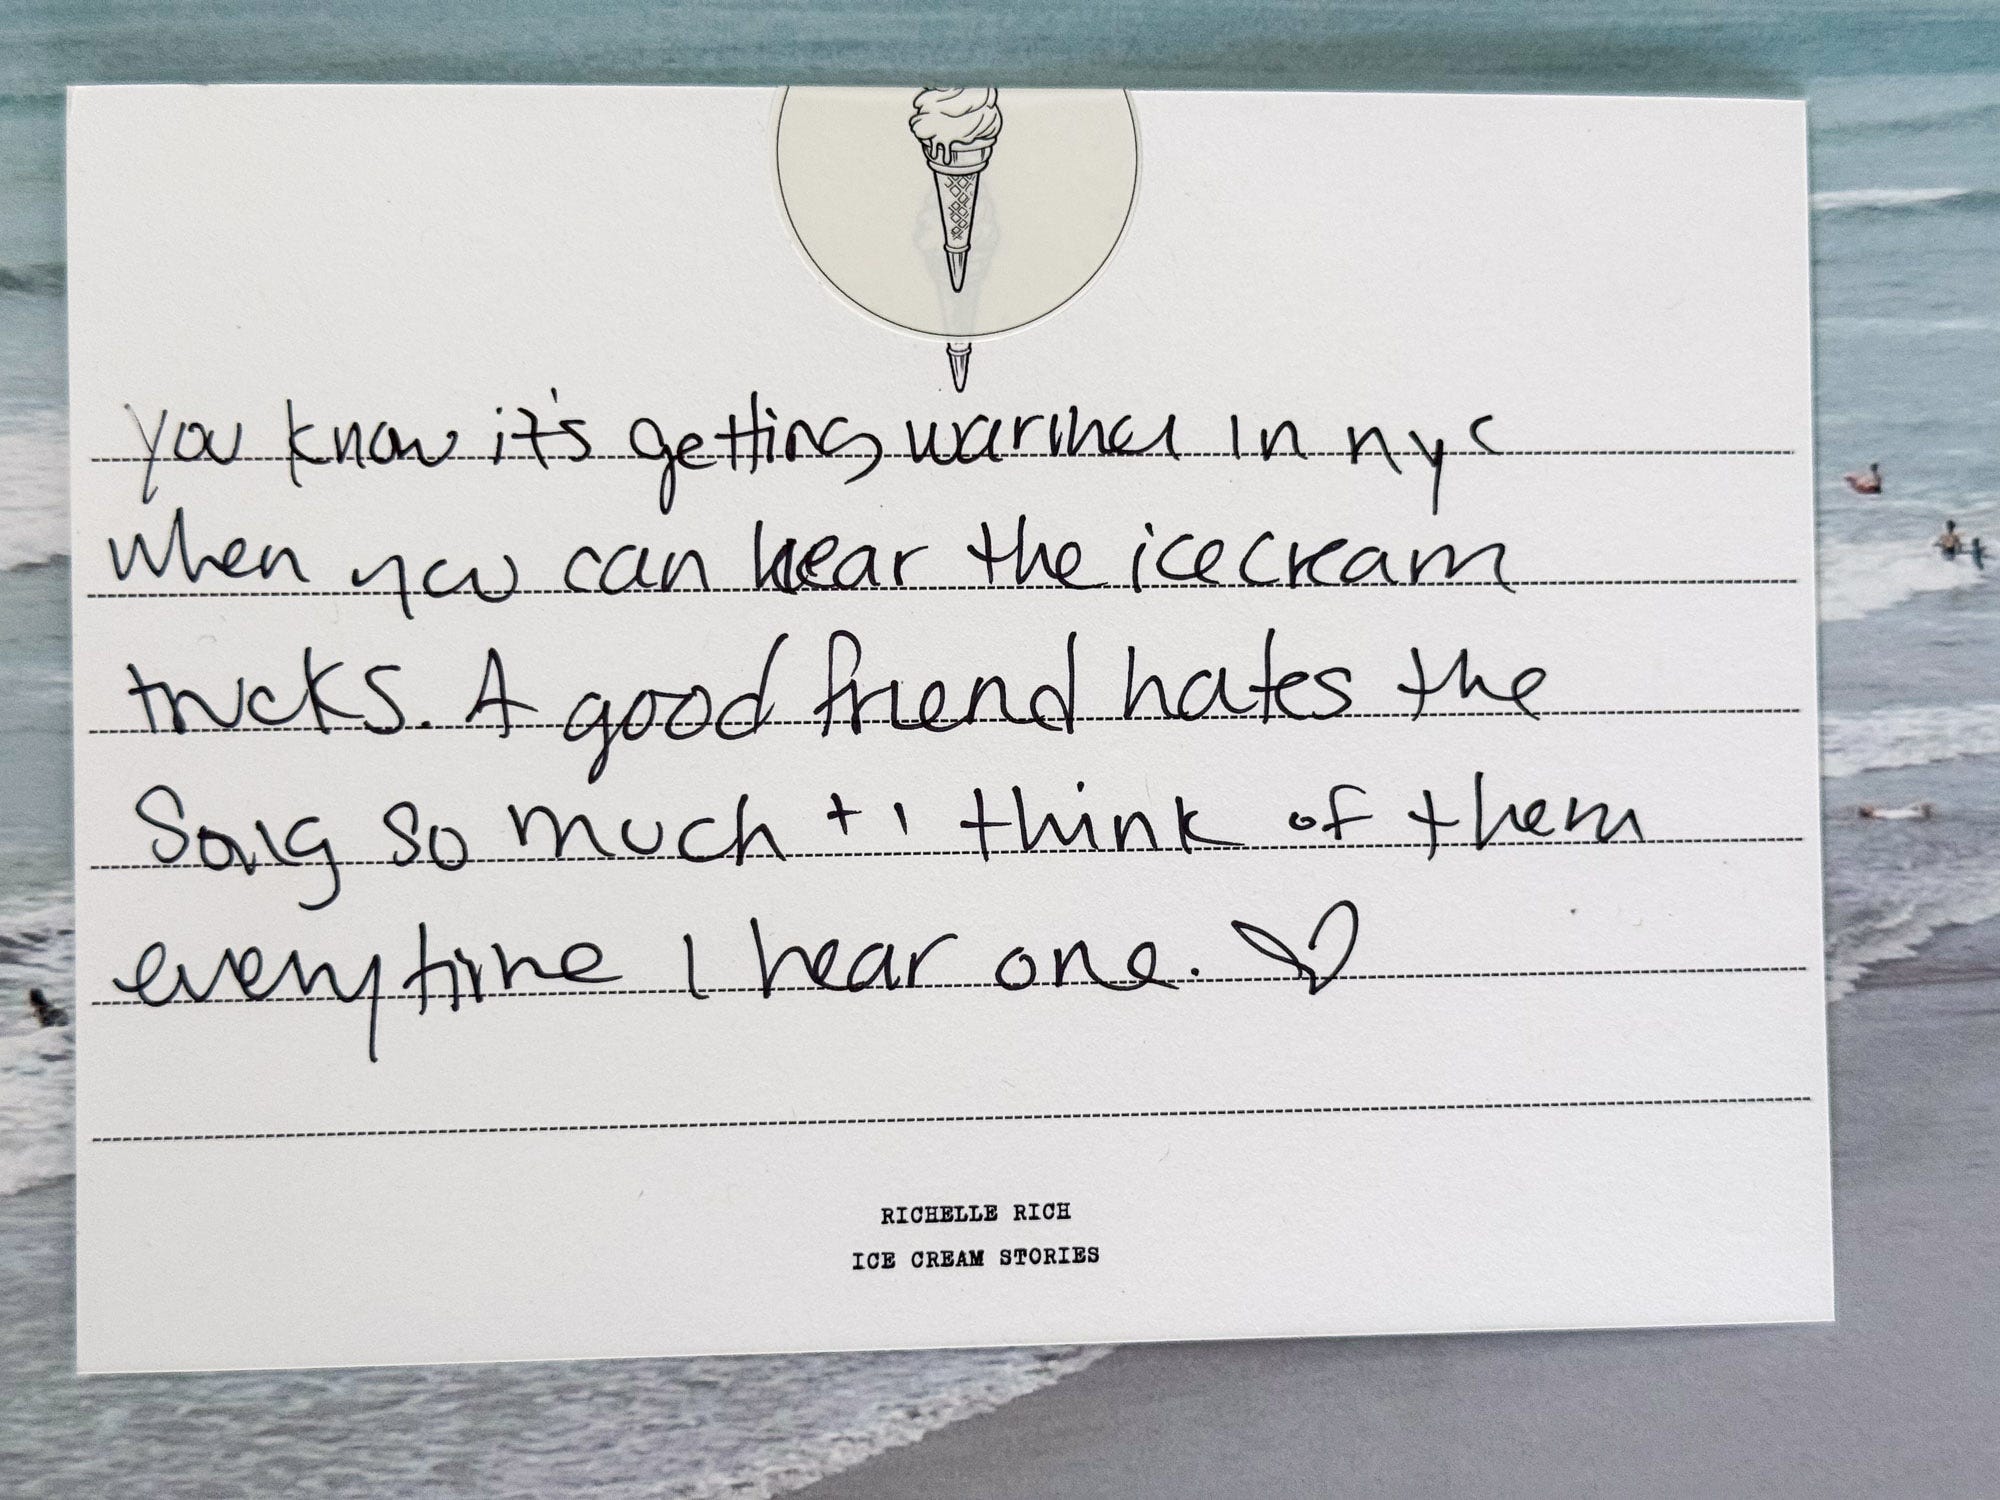 you know it's getting warmer in nyc
when you can hear the icecream
trucks. A good friend hates the
Song so much + I think of them
everytime I hear one. ♡
RICHELLE RICH
ICE CREAM STORIES